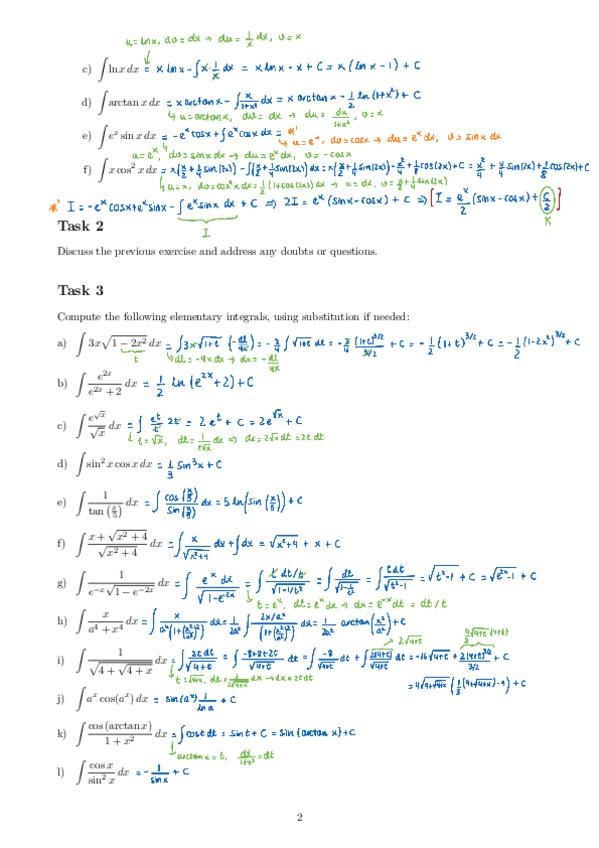 u = lnx, dv = dx → du = 1/x dx, v = x
c) ∫ ln x dx = x lnx - ∫x·1/x dx = x lnx - x + C = x (lnx - 1) + C
d) ∫ arctan x dx = x arctanx - ∫ x/(1+x²) dx = x arctanx - 1/2 ln(1+x²) + C
↳ u = arctanx, dv = dx → du = dx/(1+x²), v = x
e) ∫ eˣ sin x dx = -eˣ cosx + ∫eˣ cosx dx = *'
↳ u = eˣ, dv = cosx → du = eˣ dx, v = sinx dx
u = eˣ, dv = sinx dx → du = eˣ dx, v = -cosx
f) ∫ x cos² x dx = x(x/2 + 1/4 sin(2x)) - ∫(x/2 + 1/4 sin(2x)) dx = x(x/2 + 1/4 sin(2x)) - x²/4 + 1/8 cos(2x) + C = x²/4 + x/4 sin(2x) + 1/8 cos(2x) + C
↳ u = x, dv = cos²x dx = 1/2 (1+cos(2x)) dx → u = dx, v = x/2 + 1/4 sin(2x)
*' I = -eˣ cosx + eˣ sinx - ∫eˣ sinx dx + C ⇒ 2I = eˣ (sinx - cosx) + C ⇒ [I = eˣ/2 (sinx - cosx) + C/2]
I
K
Task 2
Discuss the previous exercise and address any doubts or questions.
Task 3
Compute the following elementary integrals, using substitution if needed:
a) ∫ 3x√(1 − 2x²) dx = ∫3x√(1+t) (-dt/4x) = -3/4 ∫√(1+t) dt = -3/4 (1+t)^(3/2)/(3/2) + C = -1/2 (1+t)^(3/2) + C = -1/2 (1-2x²)^(3/2) + C
t
↳ dt = -4x dx → dx = -dt/4x
b) ∫ e²ˣ/(e²ˣ + 2) dx = 1/2 ln(e²ˣ + 2) + C
c) ∫ e^√x/√x dx = ∫ eᵗ/t 2t = 2eᵗ + C = 2e^√x + C
↳ t = √x, dt = 1/(2√x) dx ⇒ dx = 2√x dt = 2t dt
d) ∫ sin² x cos x dx = 1/3 sin³x + C
e) ∫ 1/tan(x/5) dx = ∫ cos(x/5)/sin(x/5) dx = 5 ln|sin(x/5)| + C
f) ∫ (x + √(x² + 4))/√(x² + 4) dx = ∫ x/√(x²+4) dx + ∫dx = √(x²+4) + x + C
g) ∫ 1/(e⁻ˣ√(1 − e⁻²ˣ)) dx = ∫ eˣ dx/√(1-e⁻²ˣ) = ∫ t dt/t/√(1-1/t²) = ∫ dt/√(1-1/t²) = ∫ t dt/√(t²-1) = √(t²-1) + C = √(e²ˣ-1) + C
↳ t = eˣ, dt = eˣ dx → dx = e⁻ˣ dt = dt/t
h) ∫ x/(a⁴ + x⁴) dx = ∫ x/(a⁴(1+(x²/a²)²)) dx = 1/2a² ∫ 2x/a²/(1+(x²/a²)²) dx = 1/2a² arctan(x²/a²) + C
2√(4+t)
4/3 √(4+t) (4+t)
i) ∫ 1/√(4 + √(4 + x)) dx = ∫ 2t dt/√(4+t) = ∫ (-8+8+2t)/√(4+t) dt = ∫ -8/√(4+t) dt + ∫ 2(4+t)/√(4+t) dt = -16√(4+t) + 2(4+t)^(3/2)/(3/2) + C
↳ t = √(4+x), dt = 1/(2√(4+x)) dx → dx = 2t dt
= 4√(4+√(4+x)) (1/3 (4+√(4+x)) - 4) + C
j) ∫ aˣ cos(aˣ) dx = sin(aˣ) 1/ln a + C
k) ∫ cos (arctan x)/(1 + x²) dx = ∫cost dt = sint + C = sin(arctan x) + C
↳ arctan x = t, dx/(1+x²) = dt
l) ∫ cos x/sin² x dx = -1/sinx + C
2